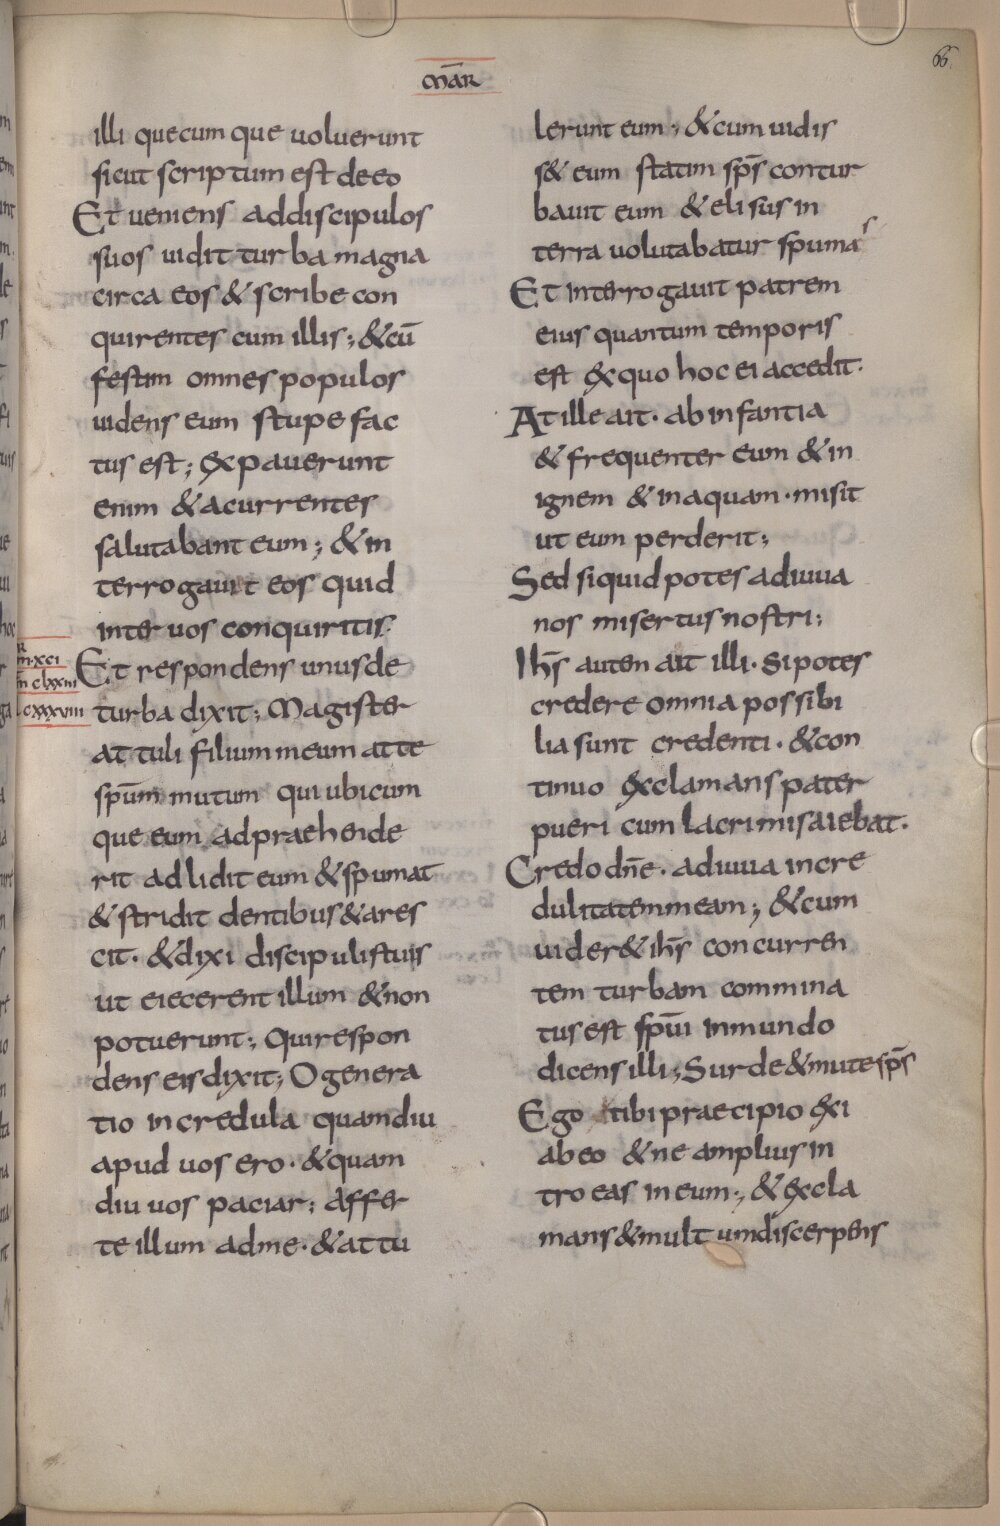 66
mār
illi quecumque uoluerunt
sicut scriptum est de eo
Et ueniens ad discipulos
suos uidit turba magna
circa eos & scribe con
quirentes cum illis; & cū
festim omnes populos
uidens eum stupe fac
tus est; expauerunt
enim & acurrentes
salutabant eum; & in
terrogauit eos quid
inter uos conquiritis.
Et respondens unus de
turba dixit; Magister
attuli filium meum at te
sp̄um mutum qui ubicum
que eum adpraehende
rit adlidit eum & spumat
& stridit dentibus & ares
cit. & dixi discipulis tuis
ut eiecerent illum & non
potuerunt; Qui respon
dens eis dixit; O genera
tio incredula quamdiu
apud uos ero. & quam
diu uos paciar; affer
te illum ad me. & attu
R
m̄.xci
m̄ clxxiii
l cxxxviii
lerunt eum; & cum uidis
s& eum statim sp̄s contur
bauit eum & elisus in
terra volutabatur spumas
Et interrogauit patrem
eius quantum temporis
est ex quo hoc ei accedit.
At ille ait. ab infantia
& frequenter eum & in
ignem & in aquam. misit
ut eum perderit;
Sed si quid potes adiuua
nos misertus nostri;
Ihs̄ autem ait illi. Si potes
credere omnia possibi
lia sunt credenti. & con
tinuo exclamans pater
pueri cum lacrimis aiebat.
Credo dn̄e. adiuua incre
dulitatem meam; & cum
uider& ih̄s concurren
tem turbam commina
tus est sp̄ui inmundo
dicens illi; Surde & mute sp̄s
Ego tibi praecipio exi
ab eo & ne amplius in
troeas in eum; & excla
mans & multum discerpens